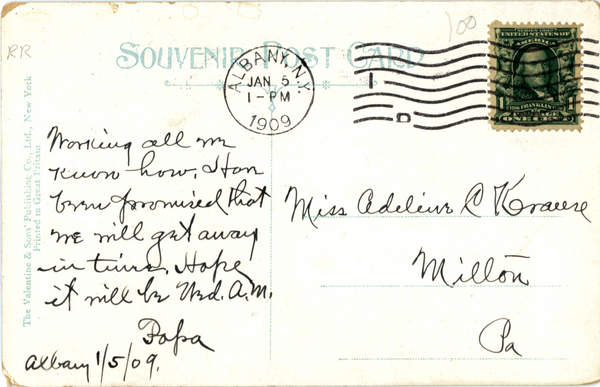 RR
100
SOUVENIR POST CARD
ALBANY, N.Y.
JAN 5
1-PM
1909
1
D
UNITED STATES OF AMERICA
1 FRANKLIN 1
ONE CENT
The Valentine & Sons' Publishing Co., Ltd., New York
Printed in Great Britain
Working all we
know how. Have
been promised that
we will get away
in time. Hope
it will be Wed. A.M.
Papa
Albany 1/5/09.
Miss Adeline R Krause
Milton
Pa